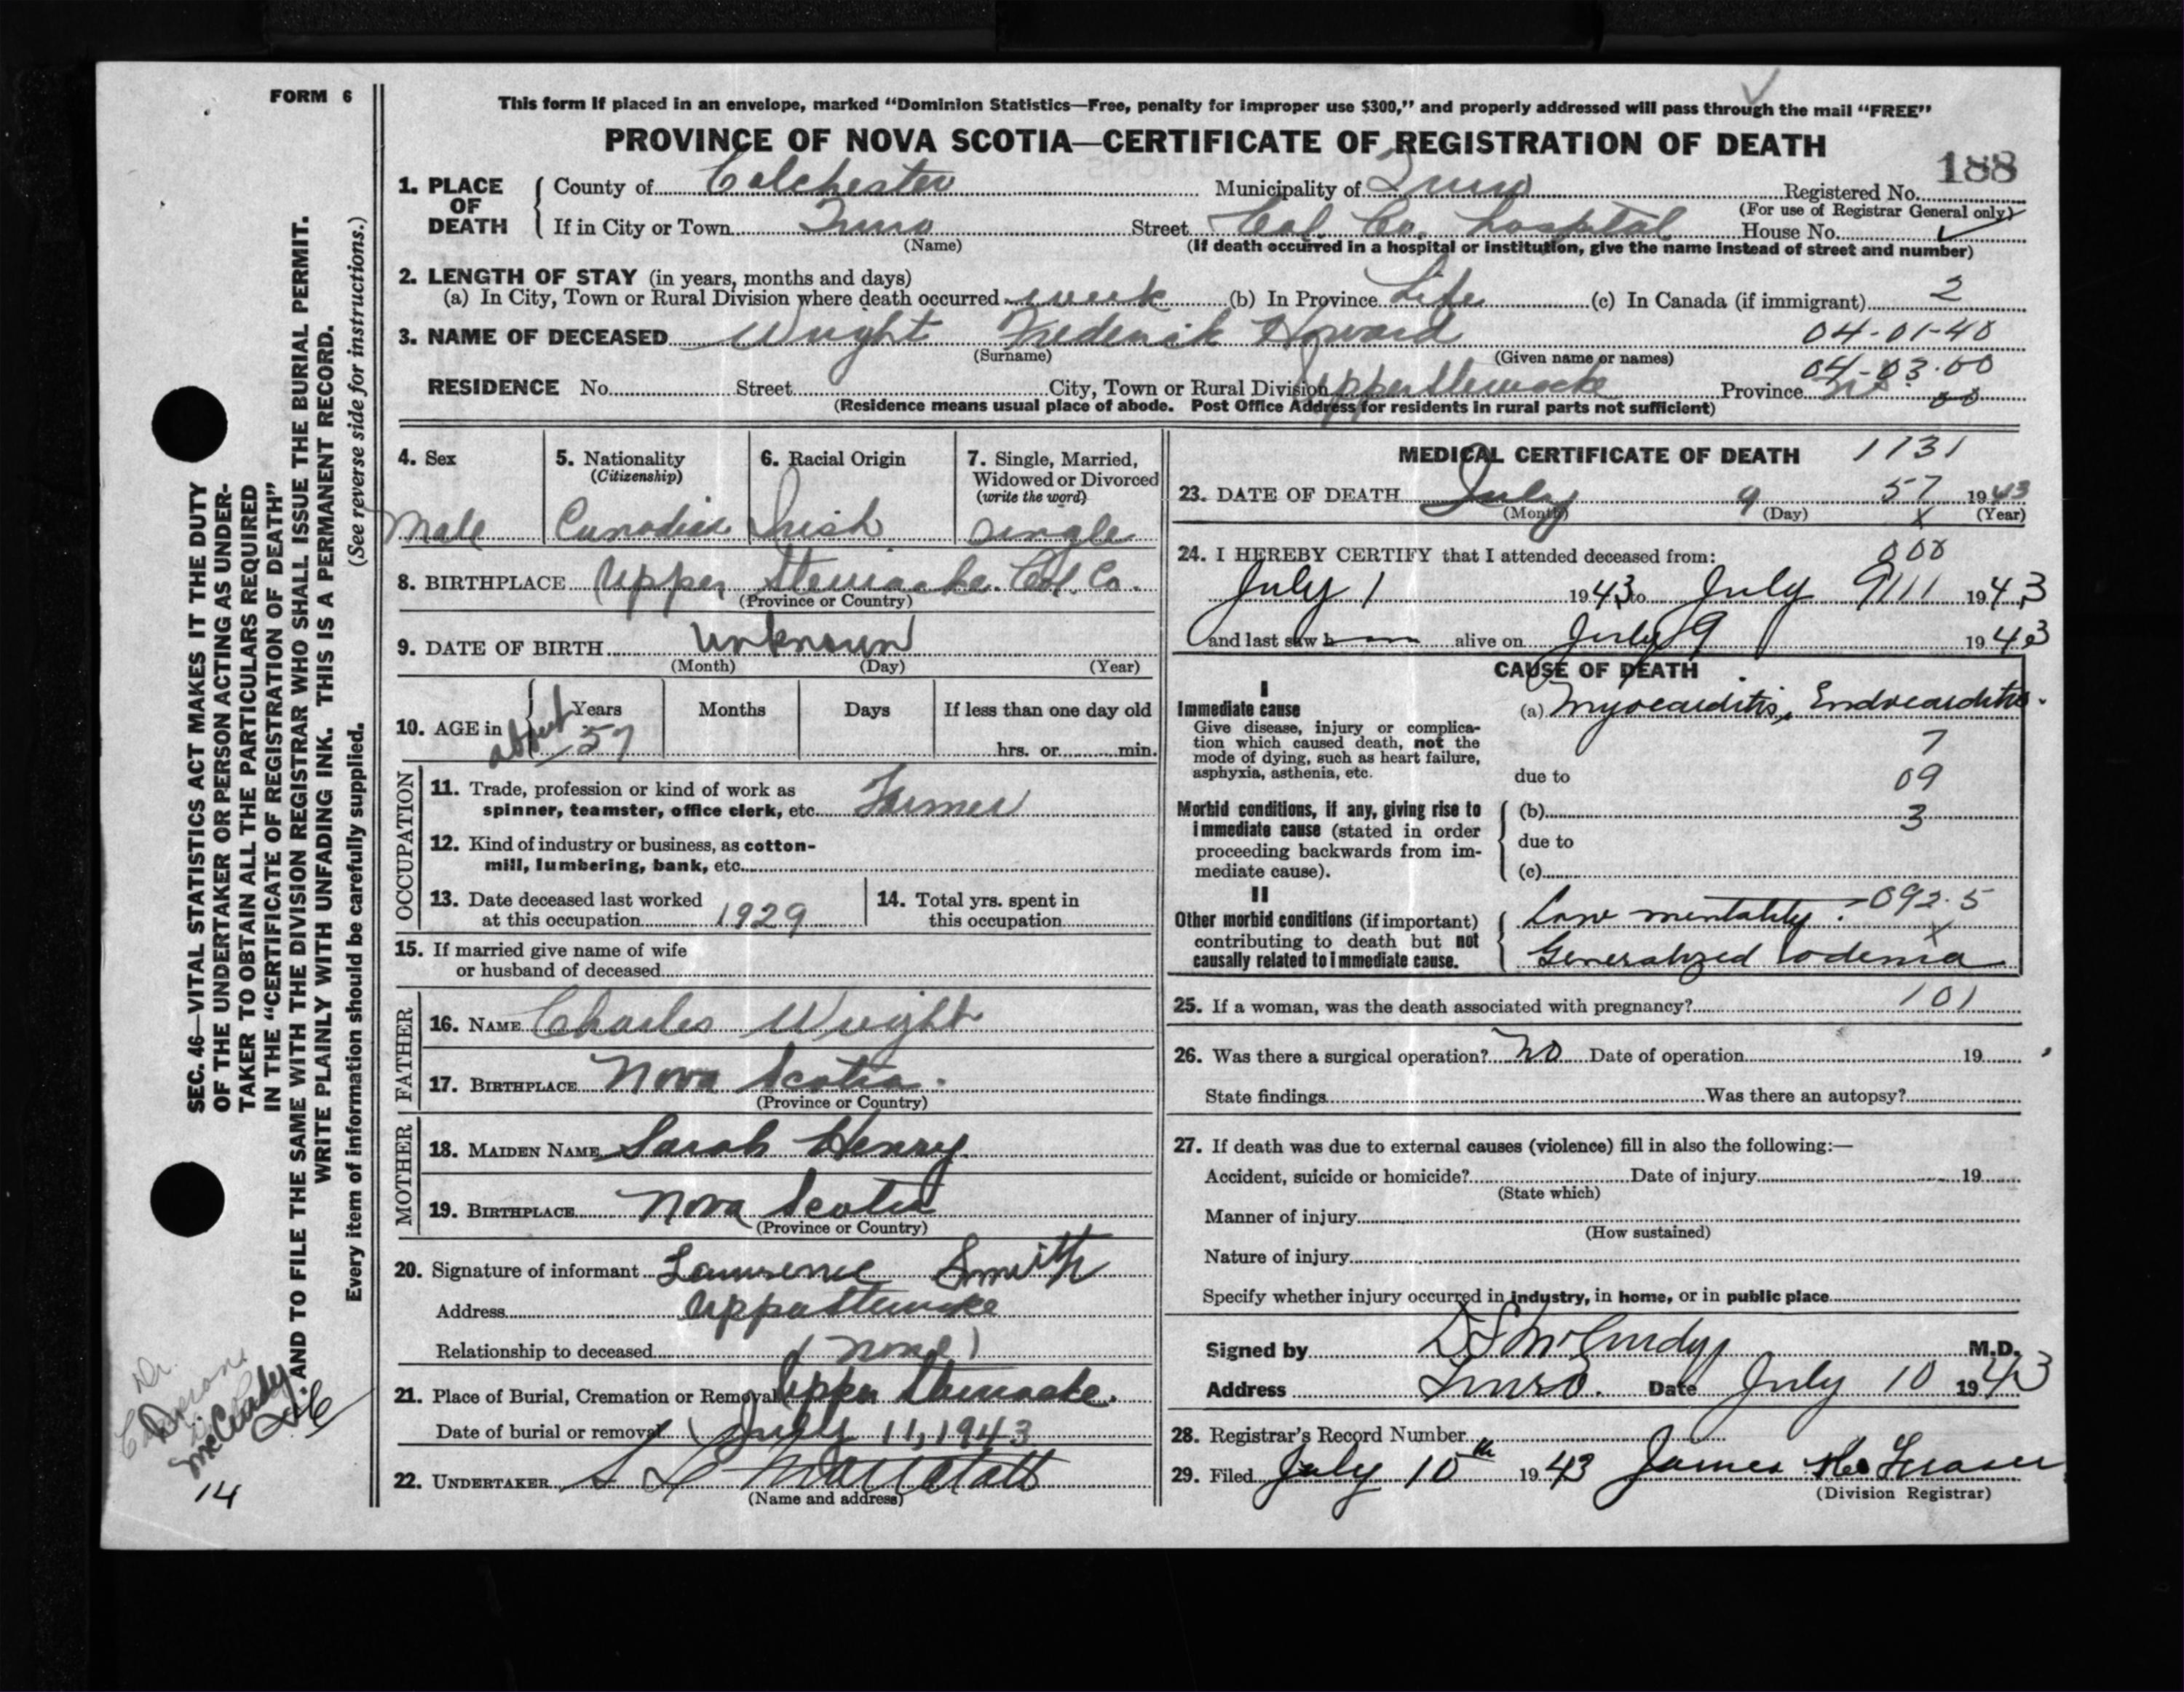 FORM 6
This form if placed in an envelope, marked "Dominion Statistics—Free, penalty for improper use $300," and properly addressed will pass through the mail "FREE"
PROVINCE OF NOVA SCOTIA—CERTIFICATE OF REGISTRATION OF DEATH
188
1. PLACE OF DEATH { County of Colchester Municipality of Truro Registered No.
(For use of Registrar General only)
If in City or Town Truro Street Col. Co. Hospital House No.
(Name) (If death occurred in a hospital or institution, give the name instead of street and number)
2. LENGTH OF STAY (in years, months and days)
(a) In City, Town or Rural Division where death occurred 1 week (b) In Province Life (c) In Canada (if immigrant) 2
3. NAME OF DECEASED Wright Frederick Howard 04-01-48
(Surname) (Given name or names)
04-03-00
RESIDENCE No. Street City, Town or Rural Division Upper Stewiacke Province NS
(Residence means usual place of abode. Post Office Address for residents in rural parts not sufficient)
4. Sex Male
5. Nationality (Citizenship) Canadian
6. Racial Origin Irish
7. Single, Married, Widowed or Divorced (write the word) Single
8. BIRTHPLACE Upper Stewiacke. Col. Co.
(Province or Country)
9. DATE OF BIRTH unknown
(Month) (Day) (Year)
10. AGE in about { Years 57 Months Days If less than one day old
hrs. or min.
OCCUPATION
11. Trade, profession or kind of work as
spinner, teamster, office clerk, etc. Farmer
12. Kind of industry or business, as cotton-
mill, lumbering, bank, etc.
13. Date deceased last worked
at this occupation 1929
14. Total yrs. spent in
this occupation
15. If married give name of wife
or husband of deceased
FATHER
16. NAME Charles Wright
17. BIRTHPLACE Nova Scotia.
(Province or Country)
MOTHER
18. MAIDEN NAME Sarah Henry
19. BIRTHPLACE Nova Scotia
(Province or Country)
20. Signature of informant Lawrence Smith
Address Upper Stewiacke
Relationship to deceased (none)
21. Place of Burial, Cremation or Removal Upper Stewiacke.
Date of burial or removal July 11, 1943
22. UNDERTAKER
(Name and address)
MEDICAL CERTIFICATE OF DEATH 1131
23. DATE OF DEATH July 9 57 1943
(Month) (Day) (Year)
x
24. I HEREBY CERTIFY that I attended deceased from: 008
July 1 1943 to July 9 1943
and last saw h alive on July 9 1943
CAUSE OF DEATH
I
Immediate cause
Give disease, injury or complica-
tion which caused death, not the
mode of dying, such as heart failure,
asphyxia, asthenia, etc.
(a) Myocarditis, Endocarditis.
7
due to 09
Morbid conditions, if any, giving rise to
immediate cause (stated in order
proceeding backwards from im-
mediate cause).
(b) 3
due to
(c)
II
Other morbid conditions (if important)
contributing to death but not
causally related to immediate cause.
Low mentality. 092.5
x
Generalized oedema
25. If a woman, was the death associated with pregnancy? 101
26. Was there a surgical operation? No Date of operation 19
State findings Was there an autopsy?
27. If death was due to external causes (violence) fill in also the following:—
Accident, suicide or homicide? Date of injury 19
(State which)
Manner of injury
(How sustained)
Nature of injury
Specify whether injury occurred in industry, in home, or in public place
Signed by D S McCurdy M.D.
Address Truro. Date July 10 1943
28. Registrar's Record Number
29. Filed July 10th 1943 James H. Fraser
(Division Registrar)
SEC. 46—VITAL STATISTICS ACT MAKES IT THE DUTY
OF THE UNDERTAKER OR PERSON ACTING AS UNDER-
TAKER TO OBTAIN ALL THE PARTICULARS REQUIRED
IN THE "CERTIFICATE OF REGISTRATION OF DEATH"
AND TO FILE THE SAME WITH THE DIVISION REGISTRAR WHO SHALL ISSUE THE BURIAL PERMIT.
WRITE PLAINLY WITH UNFADING INK. THIS IS A PERMANENT RECORD.
Every item of information should be carefully supplied. (See reverse side for instructions.)
Dr.
McCurdy
14